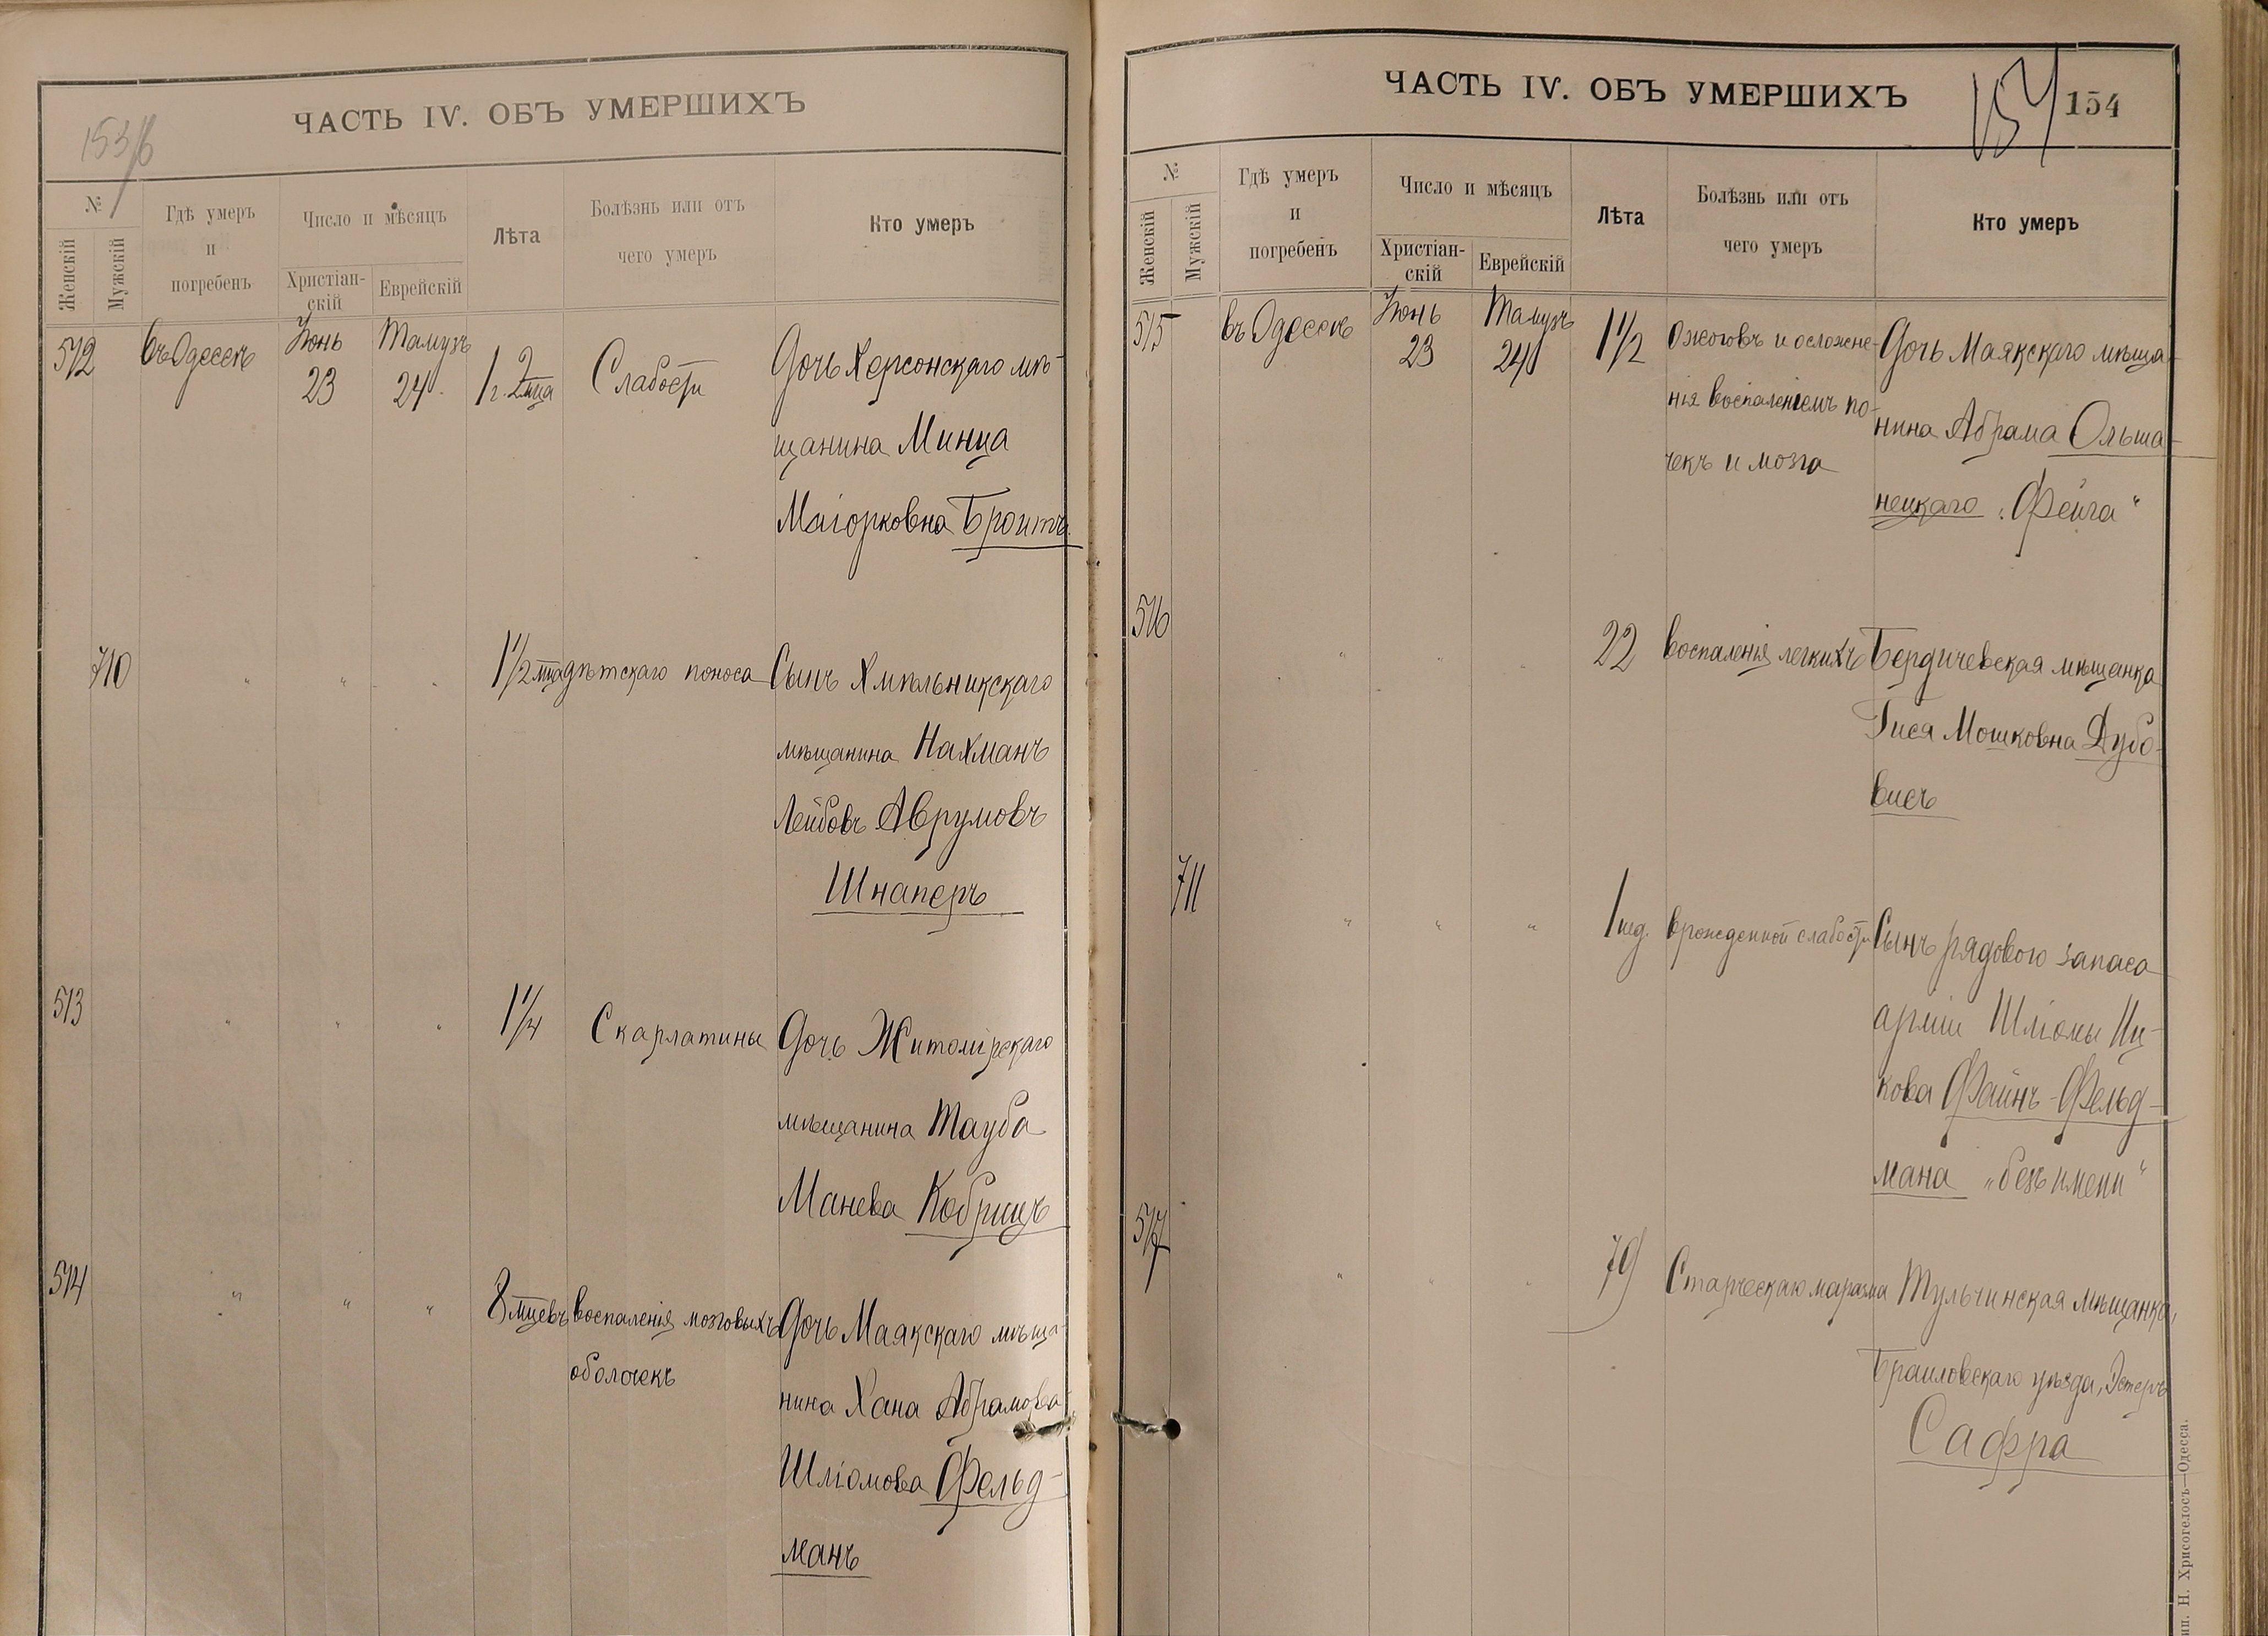 ЧАСТЬ IV. ОБЪ УМЕРШИХЪ
153/б
№
Женскій
Мужскій
Гдѣ умеръ
и
погребенъ
Число и мѣсяцъ
Христіан-
скій
Еврейскій
Лѣта
Болѣзнь или отъ
чего умеръ
Кто умеръ
512
въ Одессѣ
Іюнь
23
Тамузъ
24
1 г. 2 м-ца
Слабости
Дочь Херсонскаго мѣ-
щанина Минца
Маіорковна Броитъ
710
" " "
1 1/2 м-ца
дѣтскаго поноса
Сынъ Хмѣльникскаго
мѣщанина Нахманъ
Лейбовъ Аврумовъ
Шнаперъ
513
" " "
1 1/4
Скарлатины
Дочь Житомірскаго
мѣщанина Тауба
Манева Кобрицъ
514
" " "
8 м-цевъ
воспаленія мозговыхъ
оболочекъ
Дочь Маякскаго мѣща-
нина Хана Абрамова
Шліомова Фельд-
манъ
ЧАСТЬ IV. ОБЪ УМЕРШИХЪ
154
154
№
Женскій
Мужскій
Гдѣ умеръ
и
погребенъ
Число и мѣсяцъ
Христіан-
скій
Еврейскій
Лѣта
Болѣзнь или отъ
чего умеръ
Кто умеръ
515
въ Одессѣ
Іюнь
23
Тамузъ
24
1 1/2
Ожоговъ и осложне-
нія воспаленіемъ по-
чекъ и мозга
Дочь Маякскаго мѣща-
нина Абрама Ольша-
нецкаго „Фейга"
516
" " "
22
воспаленія легкихъ
Бердичевская мѣщанка
Гися Мошковна Дубо-
висъ
711
" " "
1 нед.
врожденной слабости
Сынъ рядового запаса
арміи Шліомы Иц-
кова Файнъ-Фельд-
мана „безъ имени"
517
" " "
79
Старческаго маразма
Тульчинская мѣщанка,
Браиловскаго уѣзда, Эстеръ
Сафра
Н. Хрисогелосъ—Одесса.